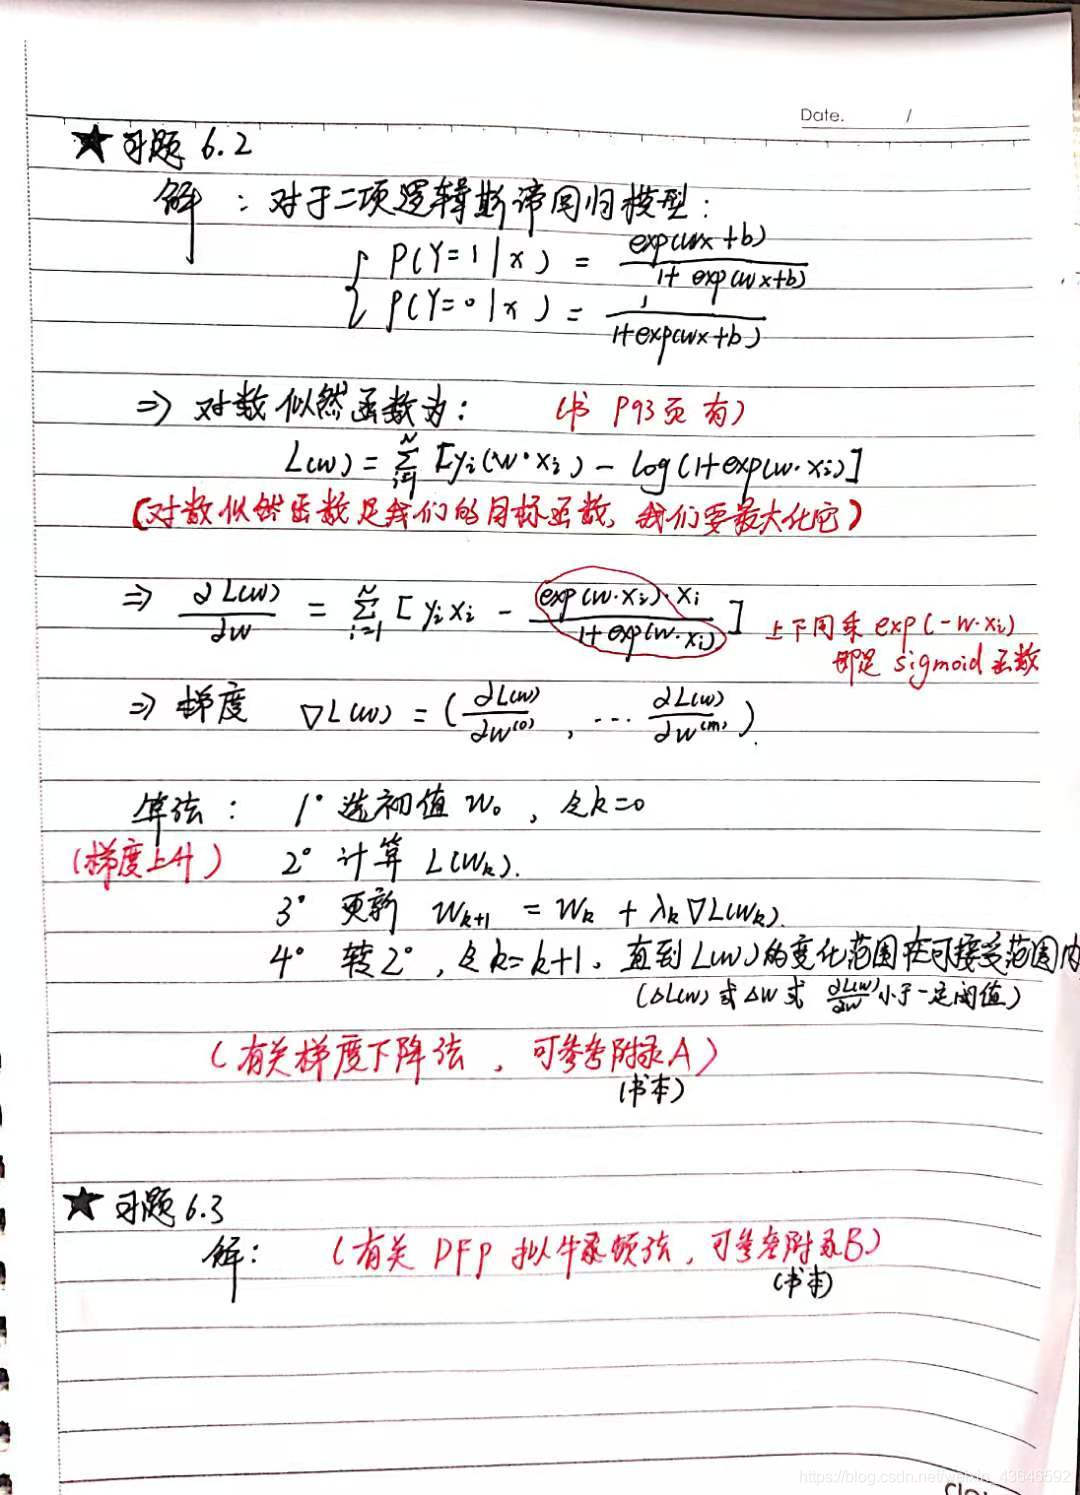 Date. /
★ 习题 6.2
解：对于二项逻辑斯谛回归模型：
P(Y=1|x) = exp(wx+b) / 1+exp(wx+b)
P(Y=0|x) = 1 / 1+exp(wx+b)
⇒ 对数似然函数为： (书 P93页有)
L(w) = Σ_{i=1}^{N} [y_i(w·x_i) - log(1+exp(w·x_i)]
(对数似然函数是我们的目标函数，我们要最大化它)
⇒ ∂L(w)/∂w = Σ_{i=1}^{N} [y_i x_i - exp(w·x_i)·x_i / 1+exp(w·x_i)] 上下同乘 exp(-w·x_i)
即是 sigmoid 函数
⇒ 梯度 ∇L(w) = (∂L(w)/∂w^(0), ... ∂L(w)/∂w^(m)).
算法： 1° 选初值 w_0，令k=0
(梯度上升) 2° 计算 L(w_k).
3° 更新 w_{k+1} = w_k + λ_k∇L(w_k).
4° 转2°，令k=k+1，直到L(w)的变化范围在可接受范围内
(ΔL(w) 或 Δw 或 ∂L(w)/∂w 小于一定阈值)
(有关梯度下降法，可参考附录A)
(书本)
★ 习题 6.3
解： (有关 DFP 拟牛顿法，可参考附录B)
(书本)
https://blog.csdn.net/weixin_43646592